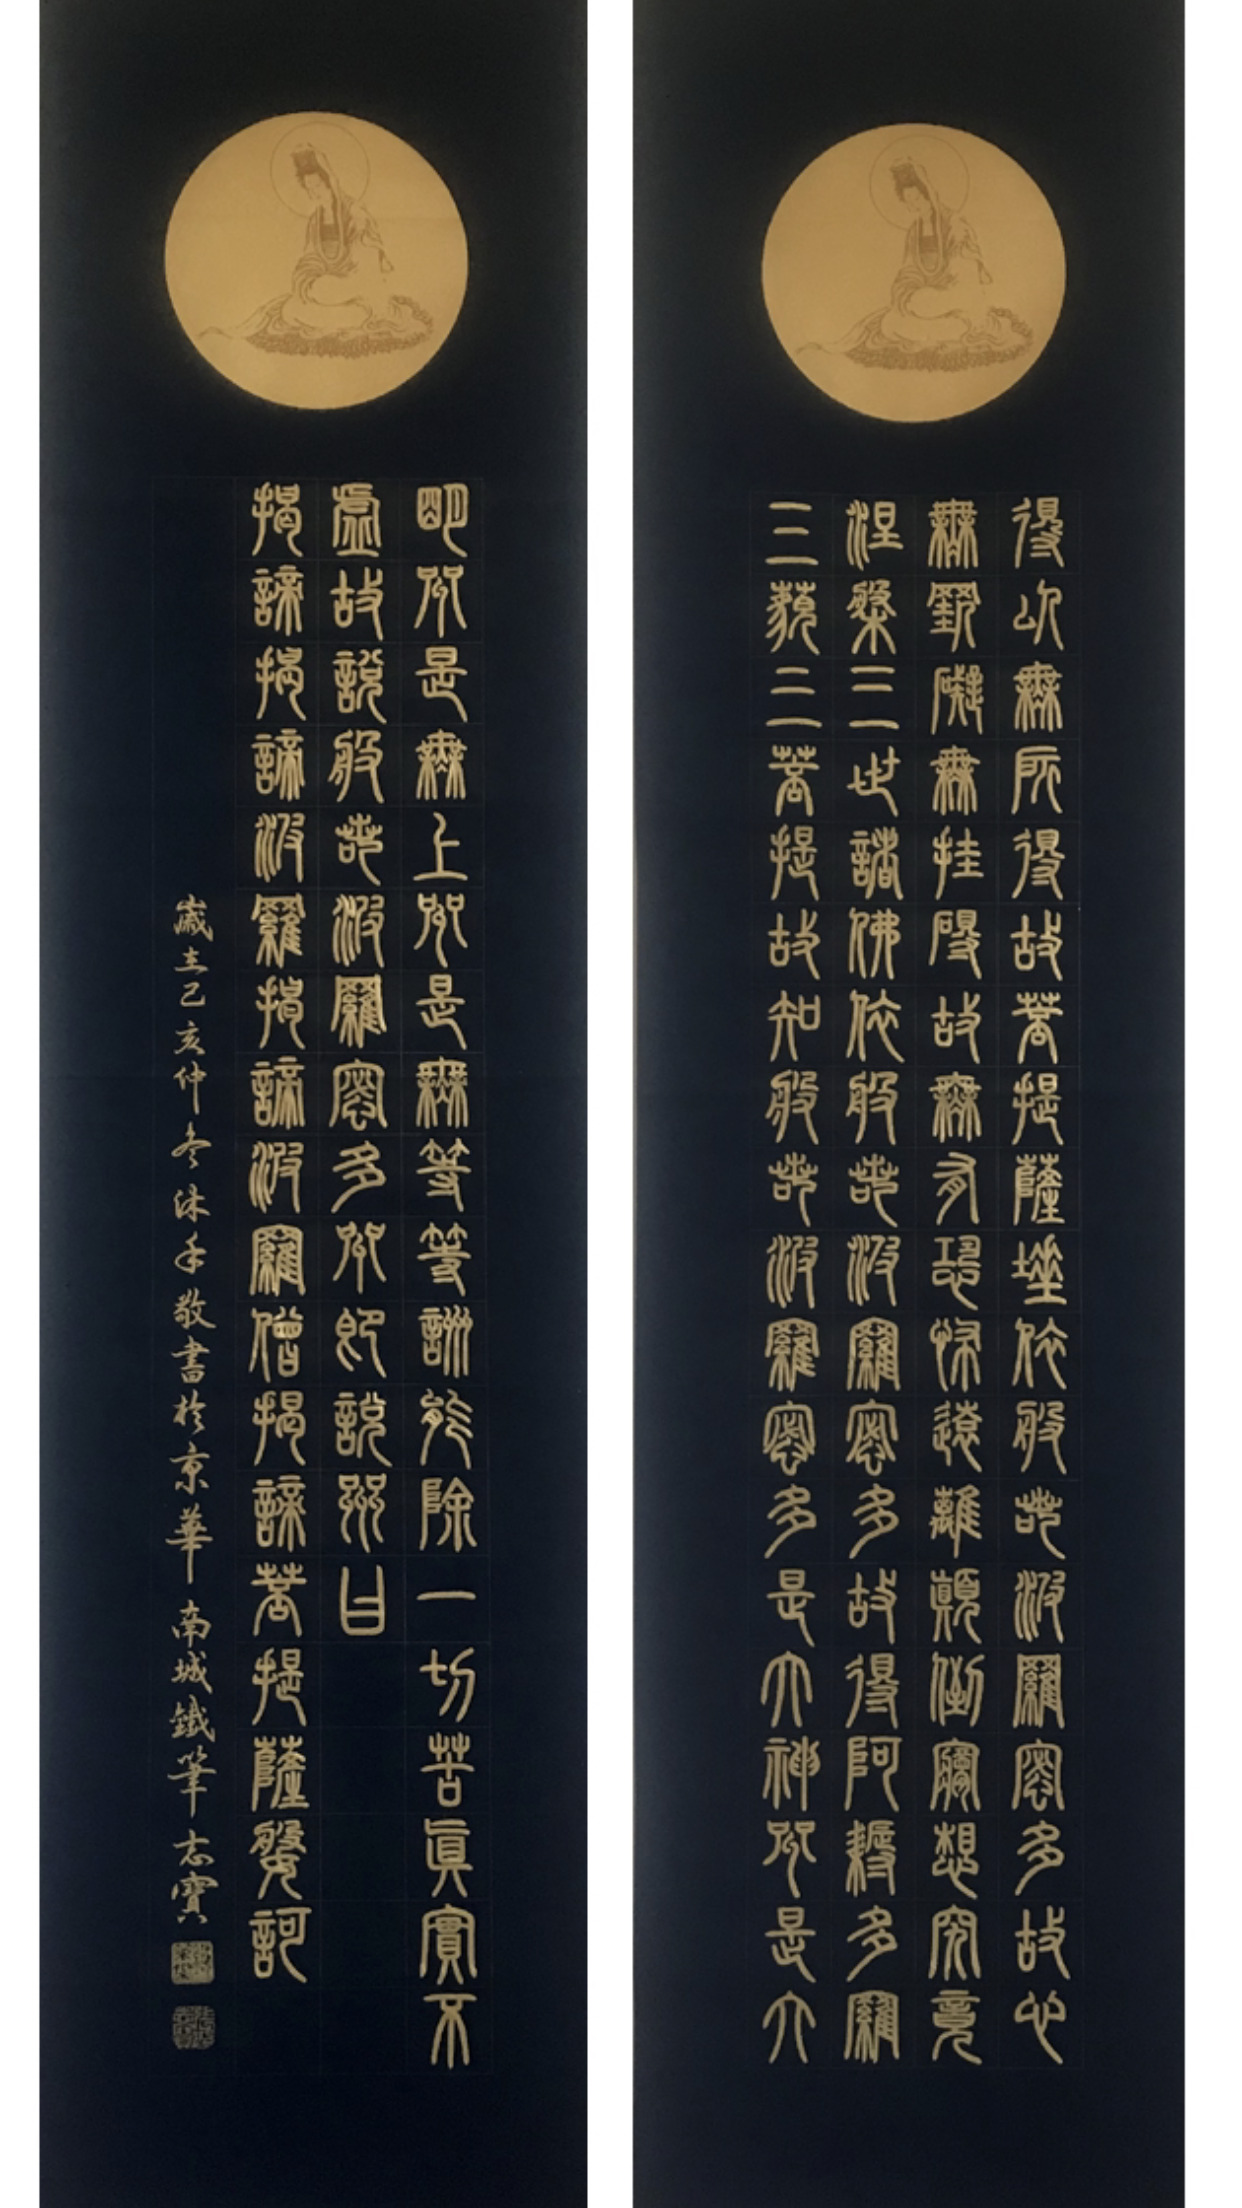 得以無所得故菩提薩埵依般若波羅密多故心
無罣礙無挂礙故無有恐怖遠離顛倒夢想究竟
涅槃三世諸佛依般若波羅密多故得阿耨多羅
三藐三菩提故知般若波羅密多是大神咒是大
明咒是無上咒是無等等詶能除一切苦眞實不
虛故說般若波羅密多咒即說咒曰
揭諦揭諦波羅揭諦波羅僧揭諦菩提薩婆訶
歲在己亥仲冬沐手敬書於京華南城鐵筆志寶